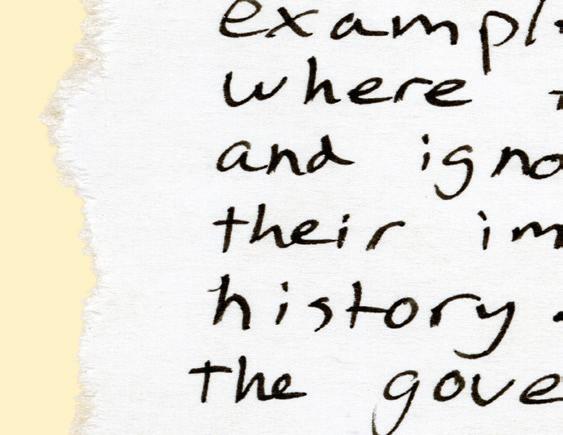 exampl
where
and igno
their im
history
the gove